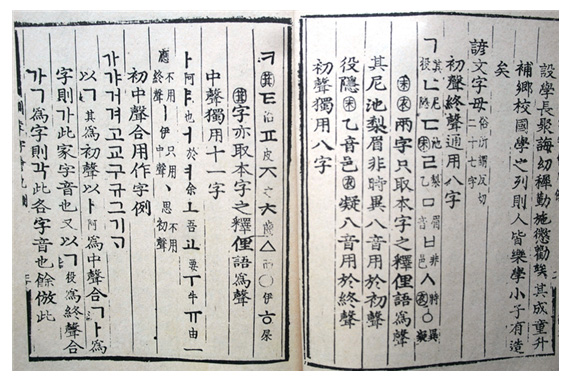 設學長聚誨幼穉勤施懲勸竢其成童升
補鄕校國學之列則人皆樂學小子有造
矣
諺文字母 俗所謂反切二十七字
初聲終聲通用八字
ㄱ其役ㄴ尼隱ㄷ池末ㄹ梨乙ㅁ眉音ㅂ非邑ㅅ時衣ㆁ異凝
末衣兩字只取本字之釋俚語爲聲
其尼池梨眉非時異八音用於初聲
役隱末乙音邑衣凝八音用於終聲
初聲獨用八字
ㅋ箕ㅌ治ㅍ皮ㅈ之ㅊ齒ㅿ而ㅇ伊ㅎ屎
箕字亦取本字之釋俚語爲聲
中聲獨用十一字
ㅏ阿ㅑ也ㅓ於ㅕ余ㅗ吾ㅛ要ㅜ牛ㅠ由ㅡ
應不用終聲ㅣ伊只用中聲ㆍ思不用初聲
初中聲合用作字例
가갸거겨고교구규그기ᄀᆞ
以ㄱ其爲初聲以ㅏ阿爲中聲合ㄱㅏ爲
字則가此家字音也又以ㄱ役爲終聲合
가ㄱ爲字則각此各字音也餘倣此